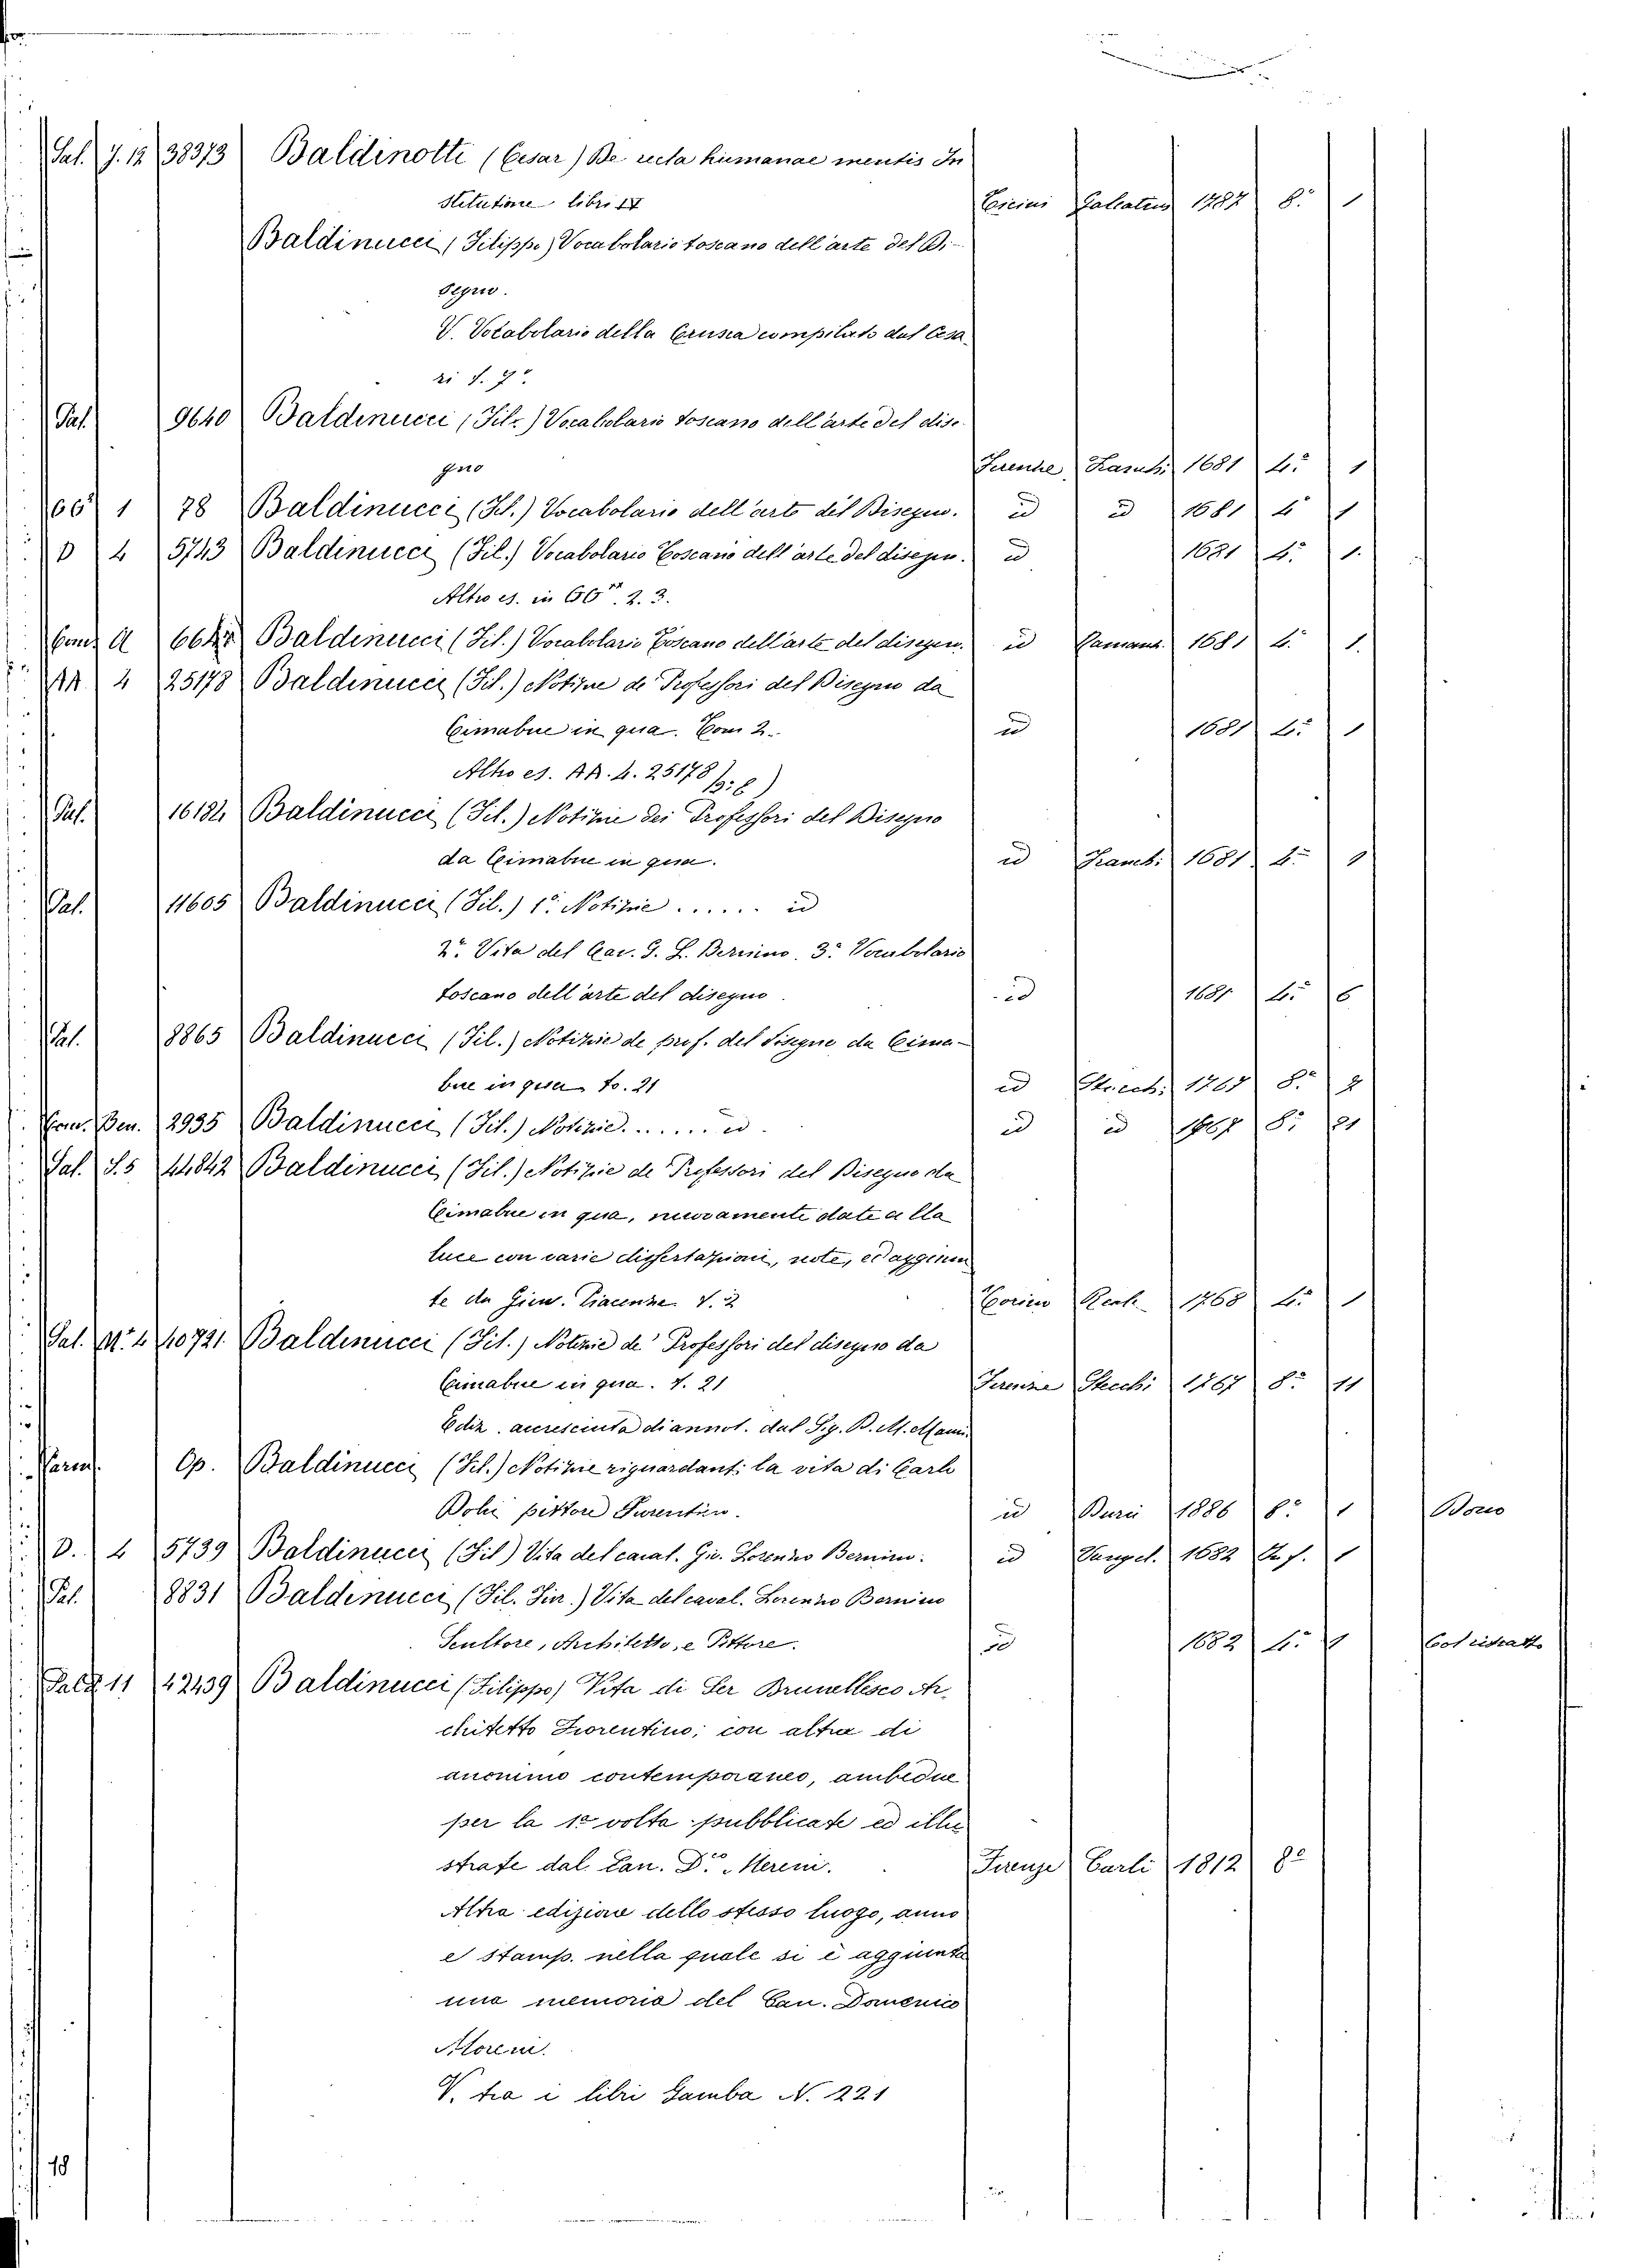 Sal. J. 12 38373 Baldinotti (Cesar) De recta humanae mentis In
stitutione libri IV Ticini Galeatius 1787 8.° 1
Baldinucci (Filippo) Vocabolario toscano dell'arte del Di-
segno.
V. Vocabolario della Crusca compilato dal Cesa
ri t. 7°.
Pal. 9640 Baldinucci (Fil.) Vocabolario toscano dell'arte del dise
gno Firenze 1681 4.° 1
66° 1 78 Baldinucci (Fil.) Vocabolario dell'arte del Disegno. id id 1681 4 1
D 4 5743 Baldinucci (Fil.) Vocabolario Toscano dell'arte del disegn. id 1681 4.° 1.
Altro es. in 66° 2. 3.
A Baldinucci (Fil.) Vocabolario Toscano dell'arte del disegn. id 1681 4.° 1.
AA 4 25178 Baldinucci (Fil.) Notizie de Professori del Disegno da
Cimabue in qua. Tom 2. id 1681 4.° 1
Altro es. AA. 4. 25178
Pal. 16184 Baldinucci (Fil.) Notizie dei Professori del Disegno
da Cimabue in qua. id Franch. 1681 4.° 1
Pal. 11605 Baldinucci (Fil.) 1.° Notizie ...... id
2.° Vita del Cav. G. L. Bernino. 3.° Vocabolario
toscano dell'arte del disegno. id 1681 4.° 6
Pal. 8865 Baldinucci (Fil.) Notizie de prof. del Disegno da Cima-
bue in qua to. 21 id Stecch. 1767 8.° 2
Com. Ben. 2935 Baldinucci (Fil.) Notizie ...... id. id id 1767 8.° 21
Sal. S.5 44842 Baldinucci (Fil.) Notizie de' Professori del Disegno da
Cimabue in qua, nuovamente date alla
luce con varie dissertazioni, note, ed aggiun
te da Gius. Piacenza. V. 2 Torino 1768 4.° 1
Sal. M.° 4 40721. Baldinucci (Fil.) Notizie de' Professori del disegno da
Cimabue in qua. t. 21 Firenze Stecchi 1767 8.° 11
Ediz. accresciuta di annot. dal Sig. D. M. Manni.
Op. Baldinucci (Fil.) Notizie riguardanti la vita di Carlo
Dolci pittore Fiorentino. id 1886 8.° 1 Bono
D. 4 5739 Baldinucci (Fil) Vita del caval. Gio. Lorenzo Bernino. id Vangel. 1682 1
Pal. 8831 Baldinucci (Fil. Fior.) Vita del caval. Lorenzo Bernino
Scultore, Architetto, e Pittore. id 1682 4.° 1 Col ritratto
11 42439 Baldinucci (Filippo) Vita di Ser Brunellesco Ar
chitetto Fiorentino; con altra di
anonimo contemporaneo, ambedue
per la 1.° volta pubblicate ed illu
strate dal Can. D.° Moreni. Firenze Carli 1812 8.°
Altra edizione dello stesso luogo, anno
e stamp. nella quale si è aggiunta
una memoria del Can. Domenico
Moreni.
V. tra i libri Gamba N. 221
18